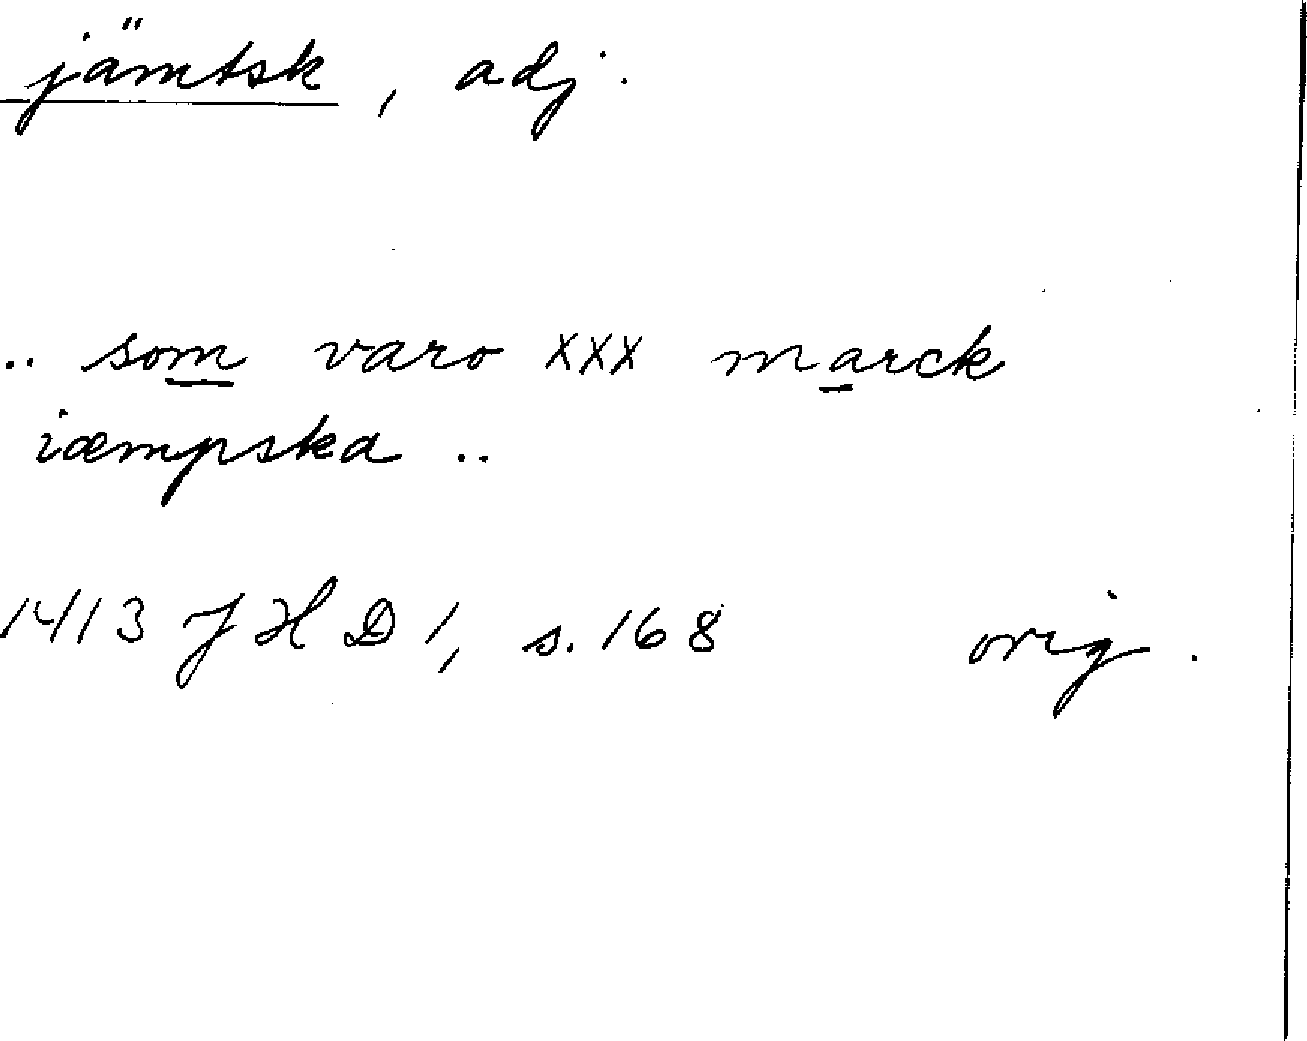 jämtsk, adj.
.. som varo xxx marck
iæmpska ..
1413 JHD 1, s. 168 orig.